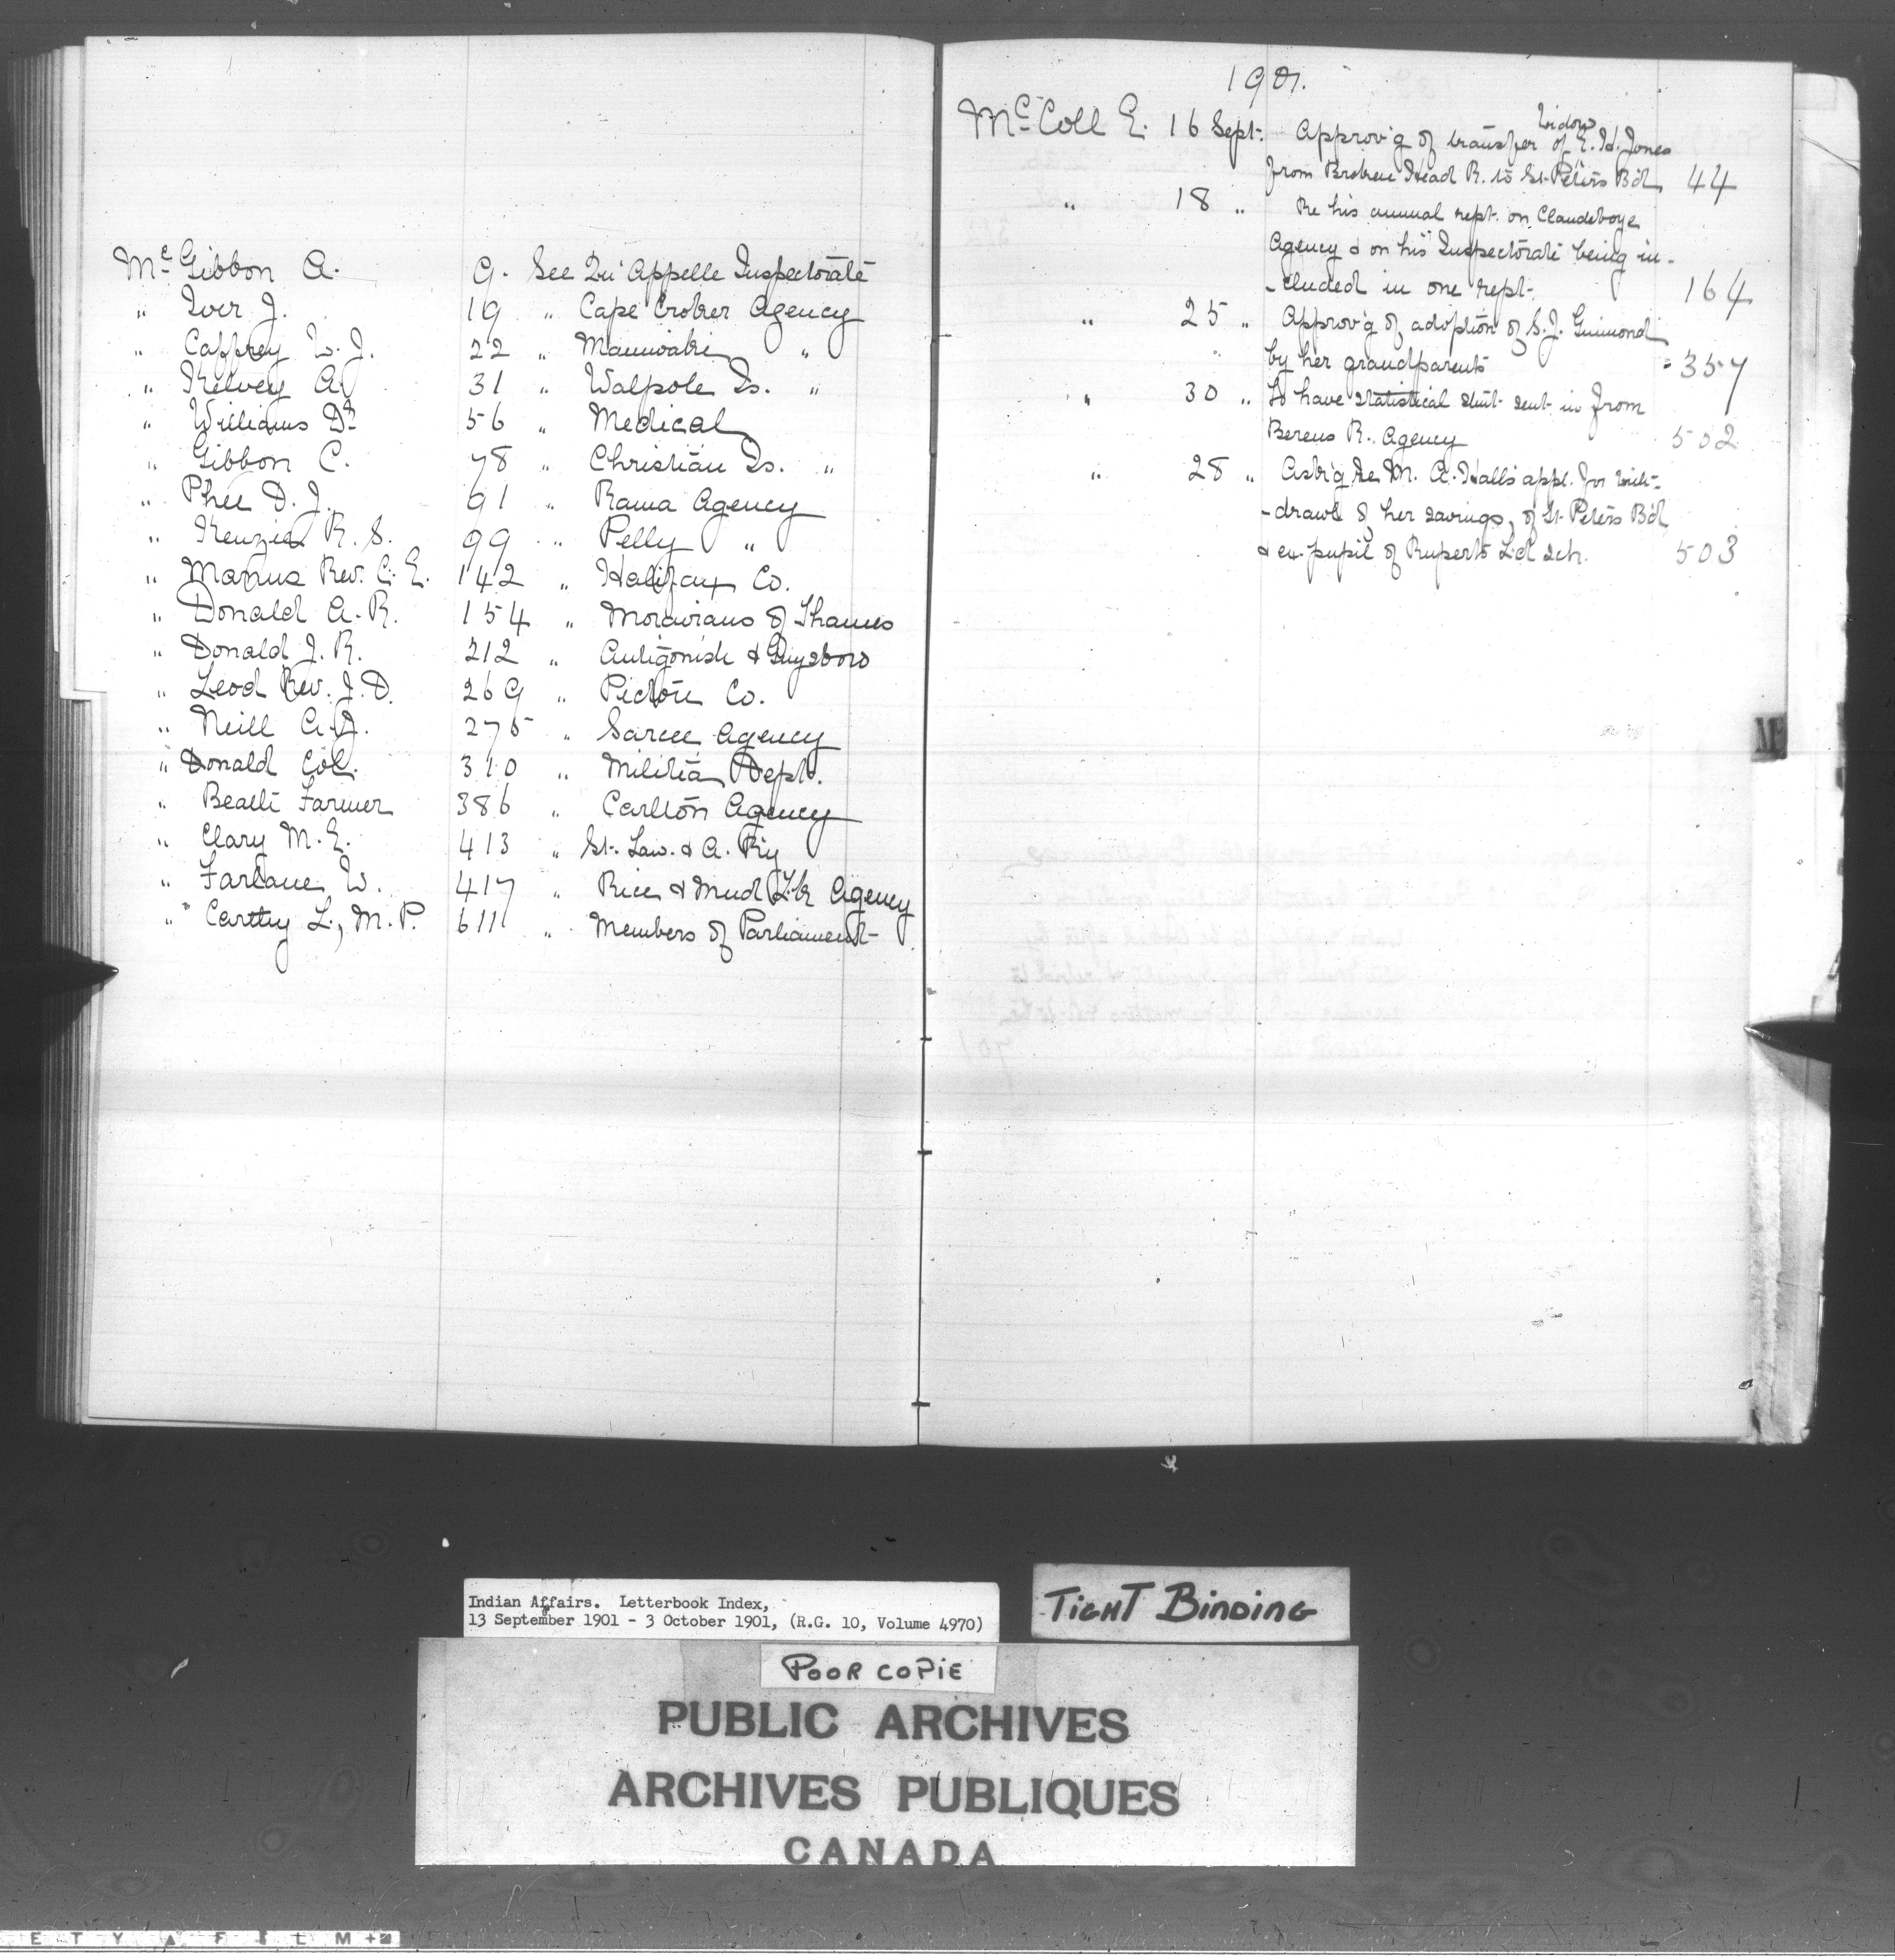 McGibbon A. 9. See Qu'Appelle Inspectorate
" Iver J. 19 " Cape Croker Agency
" Caffrey W. J. 22 " Maniwaki "
" Kelvey A. 31 " Walpole Is. "
" Williams Dr 56 " Medical
" Gibbon C. 78 " Christian Is. "
" Phee D. J. 91 " Rama Agency
" Kenzie R. S. 99 " Pelly "
" Manus Rev. C. E. 142 " Halifax Co.
" Donald A. R. 154 " Moravians of Thames
" Donald J. R. 212 " Antigonish & Guysboro
" Leod Rev. J. D. 269 " Pictou Co.
" Neill A. J. 275 " Sarcee Agency
" Donald Col. 310 " Militia Dept.
" Beath Farmer 386 " Carlton Agency
" Clary M. E. 413 " St. Law. & A. R'y
" Farlane W. 417 " Rice & Mud Lk Agency
" Carthy L., M. P. 611 " Members of Parliament
1901.
McColl E. 16 Sept. Approv'g of transfer of Widow E. H. Jones
from Broken Head R. to St. Peter's B'd, 44
" 18 " Re his annual rept. on Clandeboye
Agency & on his Inspectorate being in-
-cluded in one rept. 164
" 25 " Approv'g of adoption of S. J. Guimond
by her grandparents 357
" 30 " To have statistical stmt sent in from
Berens R. Agency 502
" 28 " Ask'g re M. A. Hall's appl. for with-
-drawl of her savings, of St. Peter's B'd,
& ex-pupil of Rupert's L'd Sch. 503
Mc
Indian Affairs. Letterbook Index,
13 September 1901 - 3 October 1901, (R.G. 10, Volume 4970)
TIGHT BINDING
POOR COPIE
PUBLIC ARCHIVES
ARCHIVES PUBLIQUES
CANADA
E T Y A F I L M +